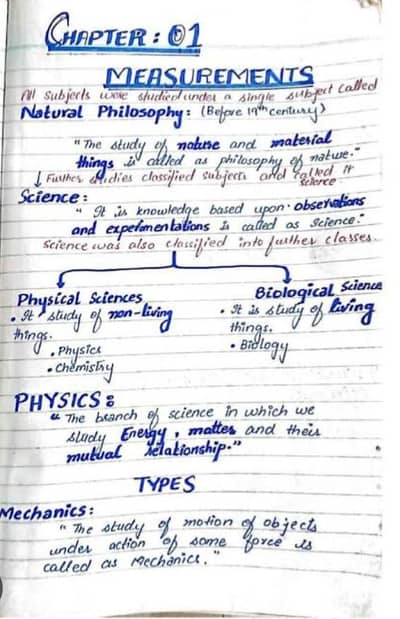 CHAPTER: 01
MEASUREMENTS
All subjects were studied under a single subject called
Natural Philosophy: (Before 19th century)
"The study of nature and material
things is called as philosophy of nature."
↓ Further studies classified subjects and called it
science
Science:
" It is knowledge based upon observations
and experimentations is called as Science."
Science was also classified into further classes.
Physical Sciences
• It study of non-living
things.
• Physics
• Chemistry
Biological Science
• It is study of living
things.
• Biology
PHYSICS:
" The branch of science in which we
study Energy, matter and their
mutual relationship."
TYPES
Mechanics:
" The study of motion of objects
under action of some force is
called as Mechanics."